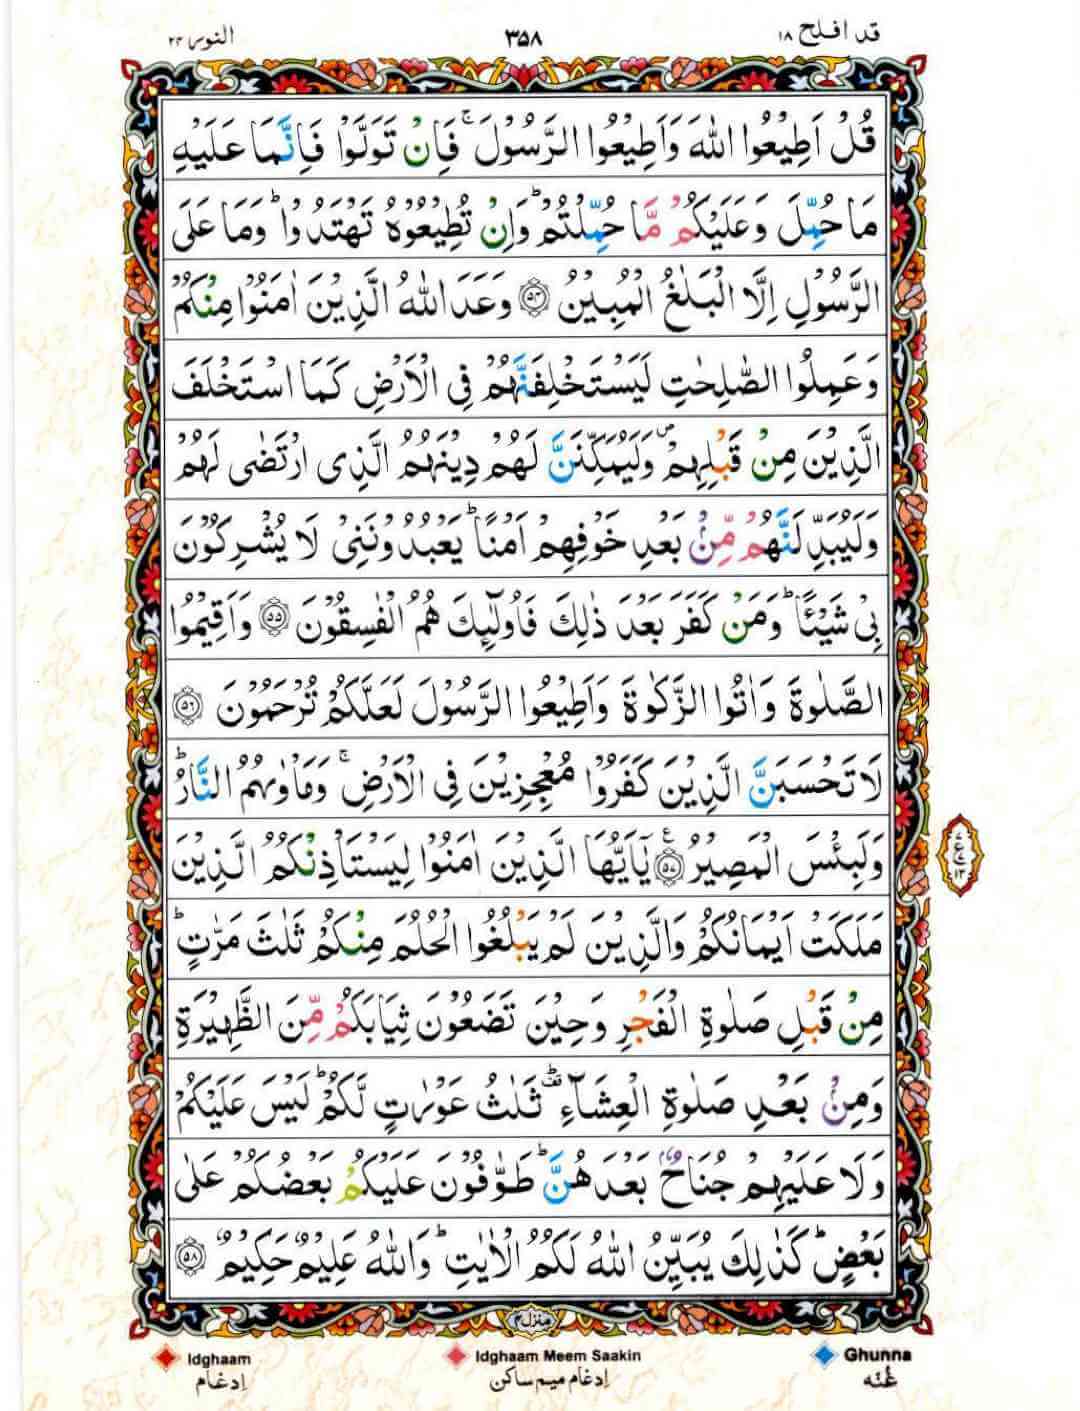 قد افلح ١٨
٣٥٨
النور ٢٤
قُلْ اَطِيْعُوا اللّٰهَ وَاَطِيْعُوا الرَّسُوْلَ ۚ فَاِنْ تَوَلَّوْا فَاِنَّمَا عَلَيْهِ
مَا حُمِّلَ وَعَلَيْكُمْ مَّا حُمِّلْتُمْ ؕ وَاِنْ تُطِيْعُوْهُ تَهْتَدُوْا ؕ وَمَا عَلَى
الرَّسُوْلِ اِلَّا الْبَلٰغُ الْمُبِيْنُ ۝۵۴ وَعَدَ اللّٰهُ الَّذِيْنَ اٰمَنُوْا مِنْكُمْ
وَعَمِلُوا الصّٰلِحٰتِ لَيَسْتَخْلِفَنَّهُمْ فِى الْاَرْضِ كَمَا اسْتَخْلَفَ
الَّذِيْنَ مِنْ قَبْلِهِمْ ۪ وَلَيُمَكِّنَنَّ لَهُمْ دِيْنَهُمُ الَّذِى ارْتَضٰى لَهُمْ
وَلَيُبَدِّلَنَّهُمْ مِّنْۢ بَعْدِ خَوْفِهِمْ اَمْنًا ؕ يَعْبُدُوْنَنِىْ لَا يُشْرِكُوْنَ
بِىْ شَيْـًٔا ؕ وَمَنْ كَفَرَ بَعْدَ ذٰلِكَ فَاُولٰٓئِكَ هُمُ الْفٰسِقُوْنَ ۝۵۵ وَاَقِيْمُوا
الصَّلٰوةَ وَاٰتُوا الزَّكٰوةَ وَاَطِيْعُوا الرَّسُوْلَ لَعَلَّكُمْ تُرْحَمُوْنَ ۝۵۶
لَا تَحْسَبَنَّ الَّذِيْنَ كَفَرُوْا مُعْجِزِيْنَ فِى الْاَرْضِ ۚ وَمَاْوٰىهُمُ النَّارُ ؕ
وَلَبِئْسَ الْمَصِيْرُ ۝۵۷ يٰۤاَيُّهَا الَّذِيْنَ اٰمَنُوْا لِيَسْتَاْذِنْكُمُ الَّذِيْنَ
مَلَكَتْ اَيْمَانُكُمْ وَالَّذِيْنَ لَمْ يَبْلُغُوا الْحُلُمَ مِنْكُمْ ثَلٰثَ مَرّٰتٍ ؕ
مِنْ قَبْلِ صَلٰوةِ الْفَجْرِ وَحِيْنَ تَضَعُوْنَ ثِيَابَكُمْ مِّنَ الظَّهِيْرَةِ
وَمِنْۢ بَعْدِ صَلٰوةِ الْعِشَآءِ ؕ قف ثَلٰثُ عَوْرٰتٍ لَّكُمْ ؕ لَيْسَ عَلَيْكُمْ
وَلَا عَلَيْهِمْ جُنَاحٌۢ بَعْدَهُنَّ ؕ طَوّٰفُوْنَ عَلَيْكُمْ بَعْضُكُمْ عَلٰى
بَعْضٍ ؕ كَذٰلِكَ يُبَيِّنُ اللّٰهُ لَكُمُ الْاٰيٰتِ ؕ وَاللّٰهُ عَلِيْمٌ حَكِيْمٌ ۝۵۸
منزل ۴
Idghaam
Idghaam Meem Saakin
Ghunna
ادغام
ادغام میم ساکن
غُنّه